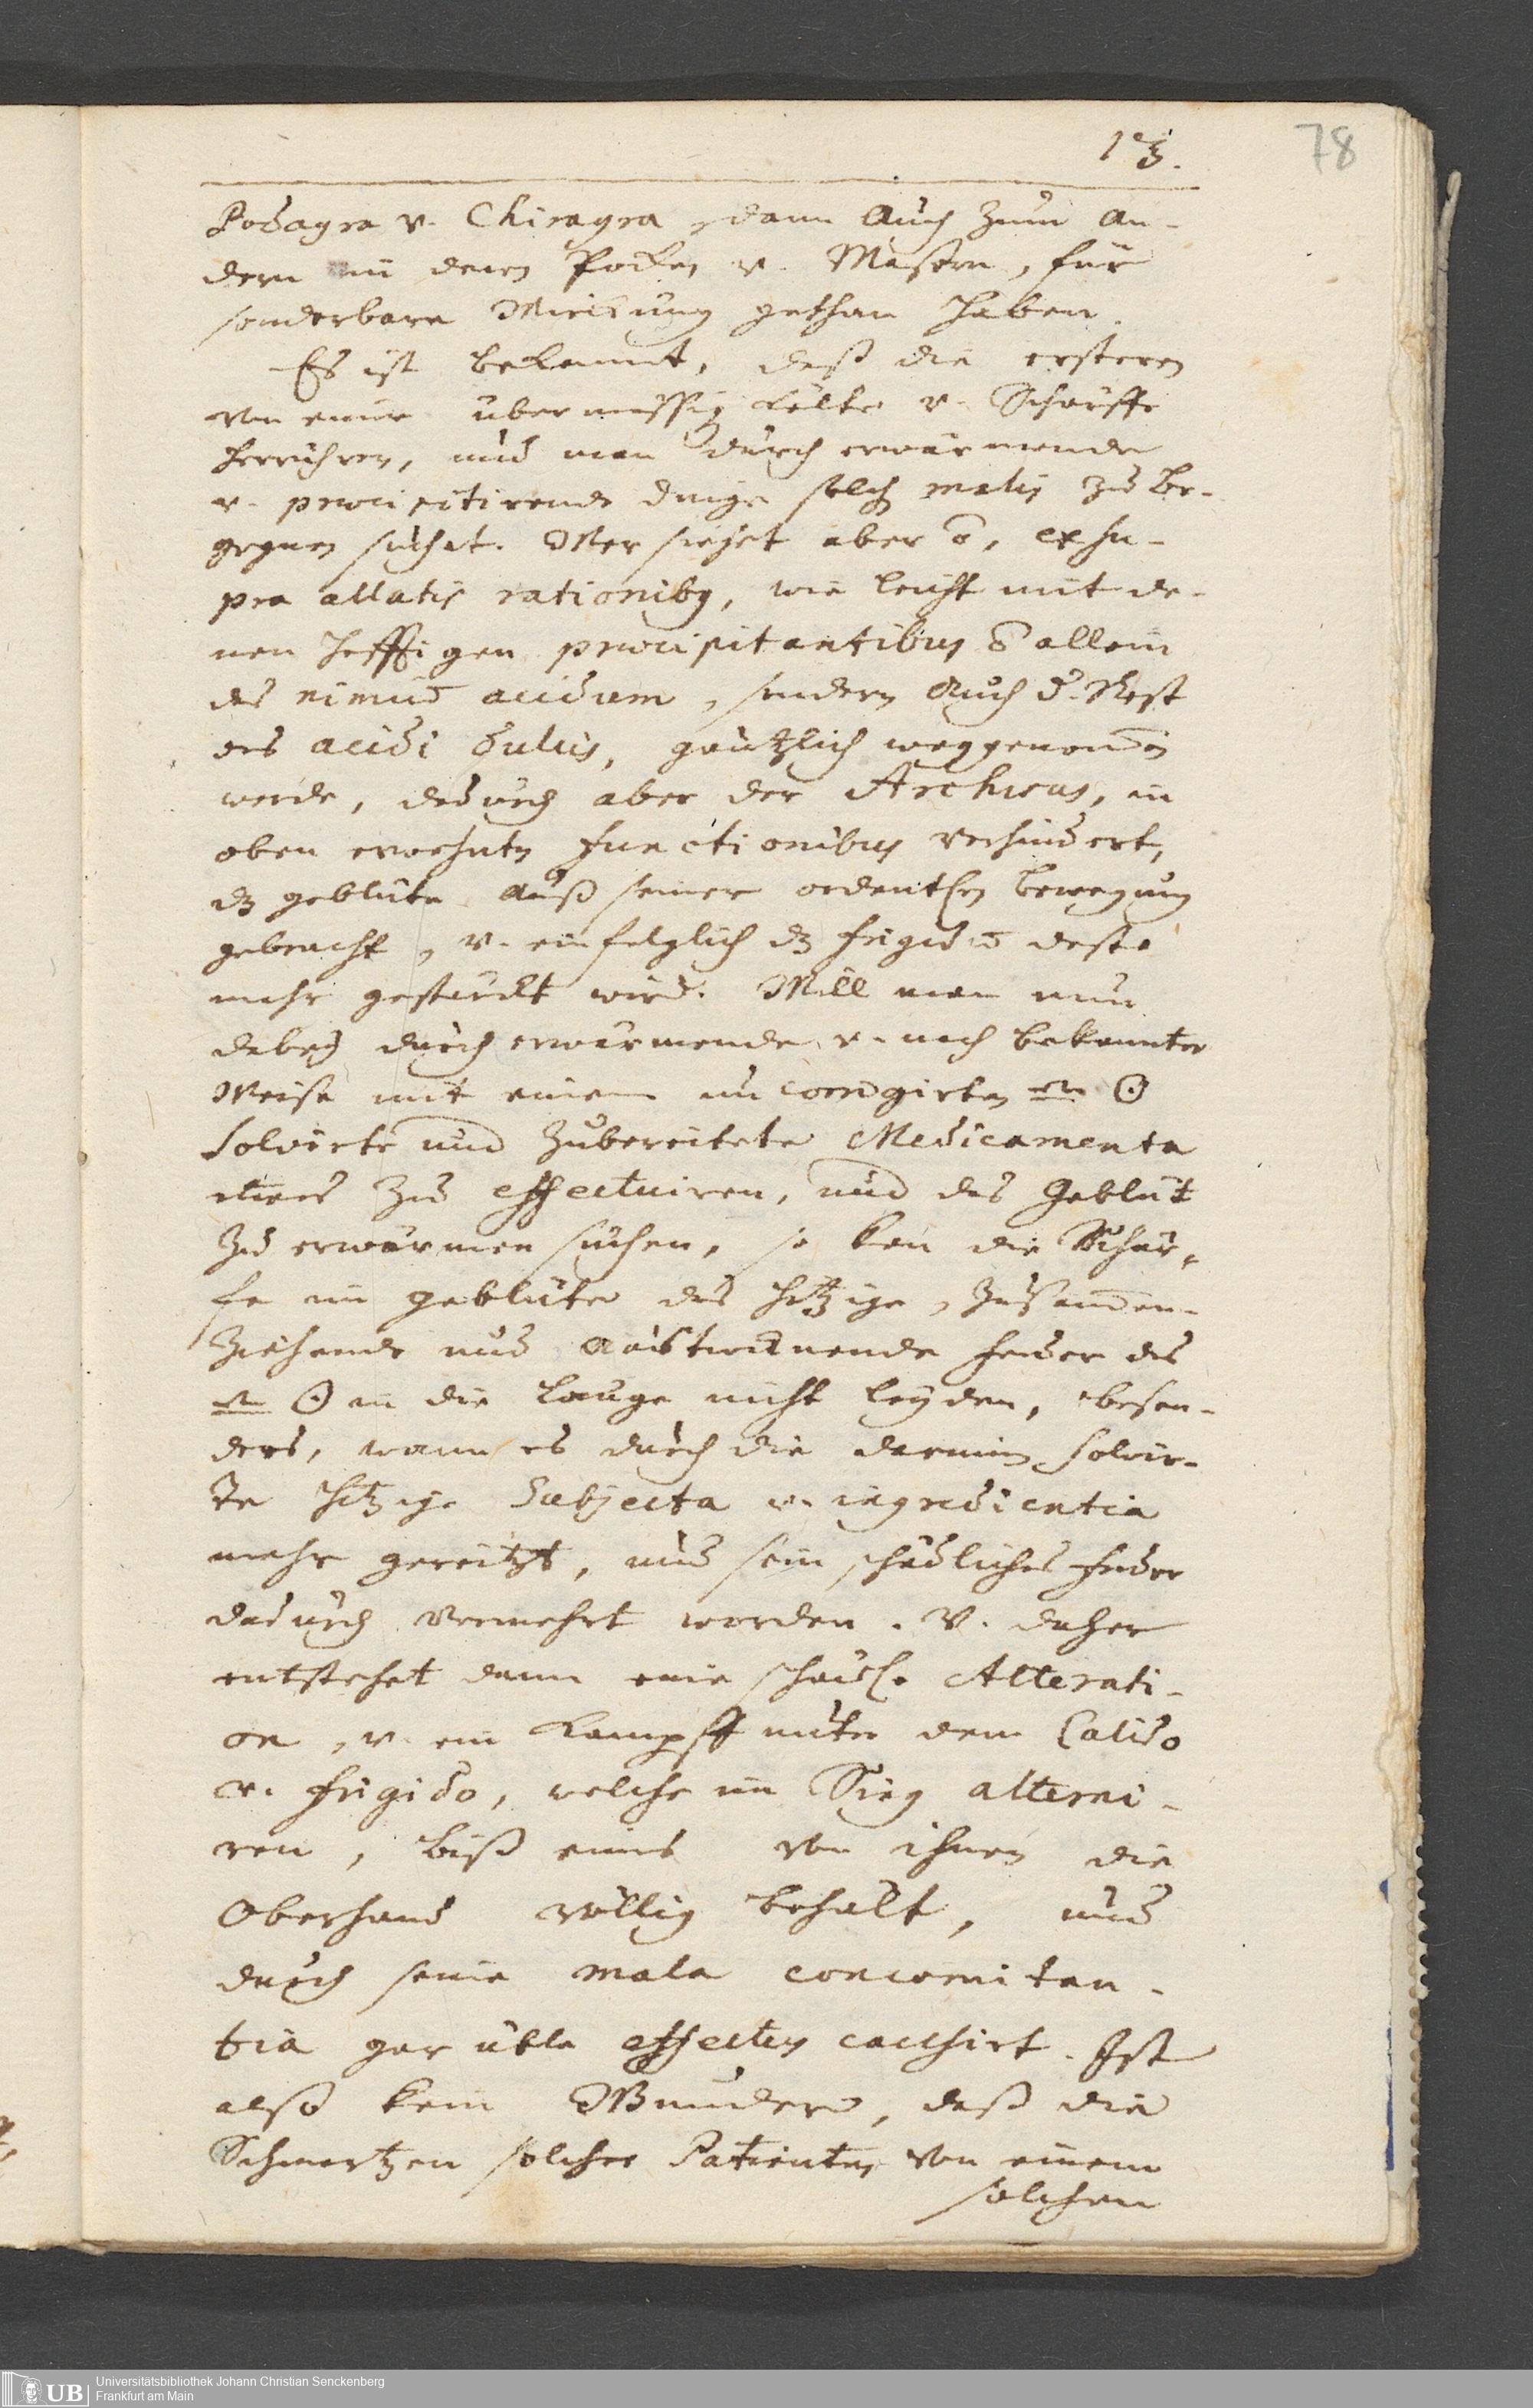 13.
78
Podagra v. Chiragra, dann auch zum an-
dern in denen Pocken v. Masern, für
sonderbare Wirckung gethan haben.
Es ist bekannt, daß die ersteren
von einer übermässig Kälte v. Schärffe
herrühren, und man durch erwärmende
v. præcipitirende Dinge solch malis zu be-
gegnen suchet. Wer siehet aber õ, ex su-
pra allatis rationibq, wie leicht mit de-
nen hefftigen præcipitantibus õ allein
das nimiũ acidum, sondern auch d. Rest
des acidi dulcis, gäntzlich weggenom̄en
werde, dadurch aber der Archæus, in
oben erwehnten functionibus verhindert,
dz geblüte auß seiner ordentlichen bewegung
gebracht, v. einfolglich dz frigidũ desto
mehr gestärckt wird. Will man nun
dabey durch erwärmende v. nach bekannter
Weise mit einem un corrigirten ☉
solvirte und zubereitete Medicamenta
etwas zu effectuiren, und das Geblüt
zu erwärmen suchen, so kan die Schär-
fe im geblüte das hitzige, zusam̄en-
ziehende und austrocknende feuer des
☉ in die länge nicht leyden, beson-
ders, wann es durch die darinnen solvir-
te hitzige Subjecta v. ingredientia
mehr gereitzt, und sein schädliches feuer
dadurch vermehrt worden. V. daher
entstehet dann eine schädl. Alterati-
on, v. ein Kampff unter dem Calido
v. frigido, welche im Sieg alterni-
ren, biß eines von ihnen die
Oberhand völlig behält, und
durch seine mala concomitan-
tia gar üble effectus causirt. Ist
also kein Wunder, daß die
Schmertzen solcher Patienten von einem
solchen
UB Universitätsbibliothek Johann Christian Senckenberg
Frankfurt am Main